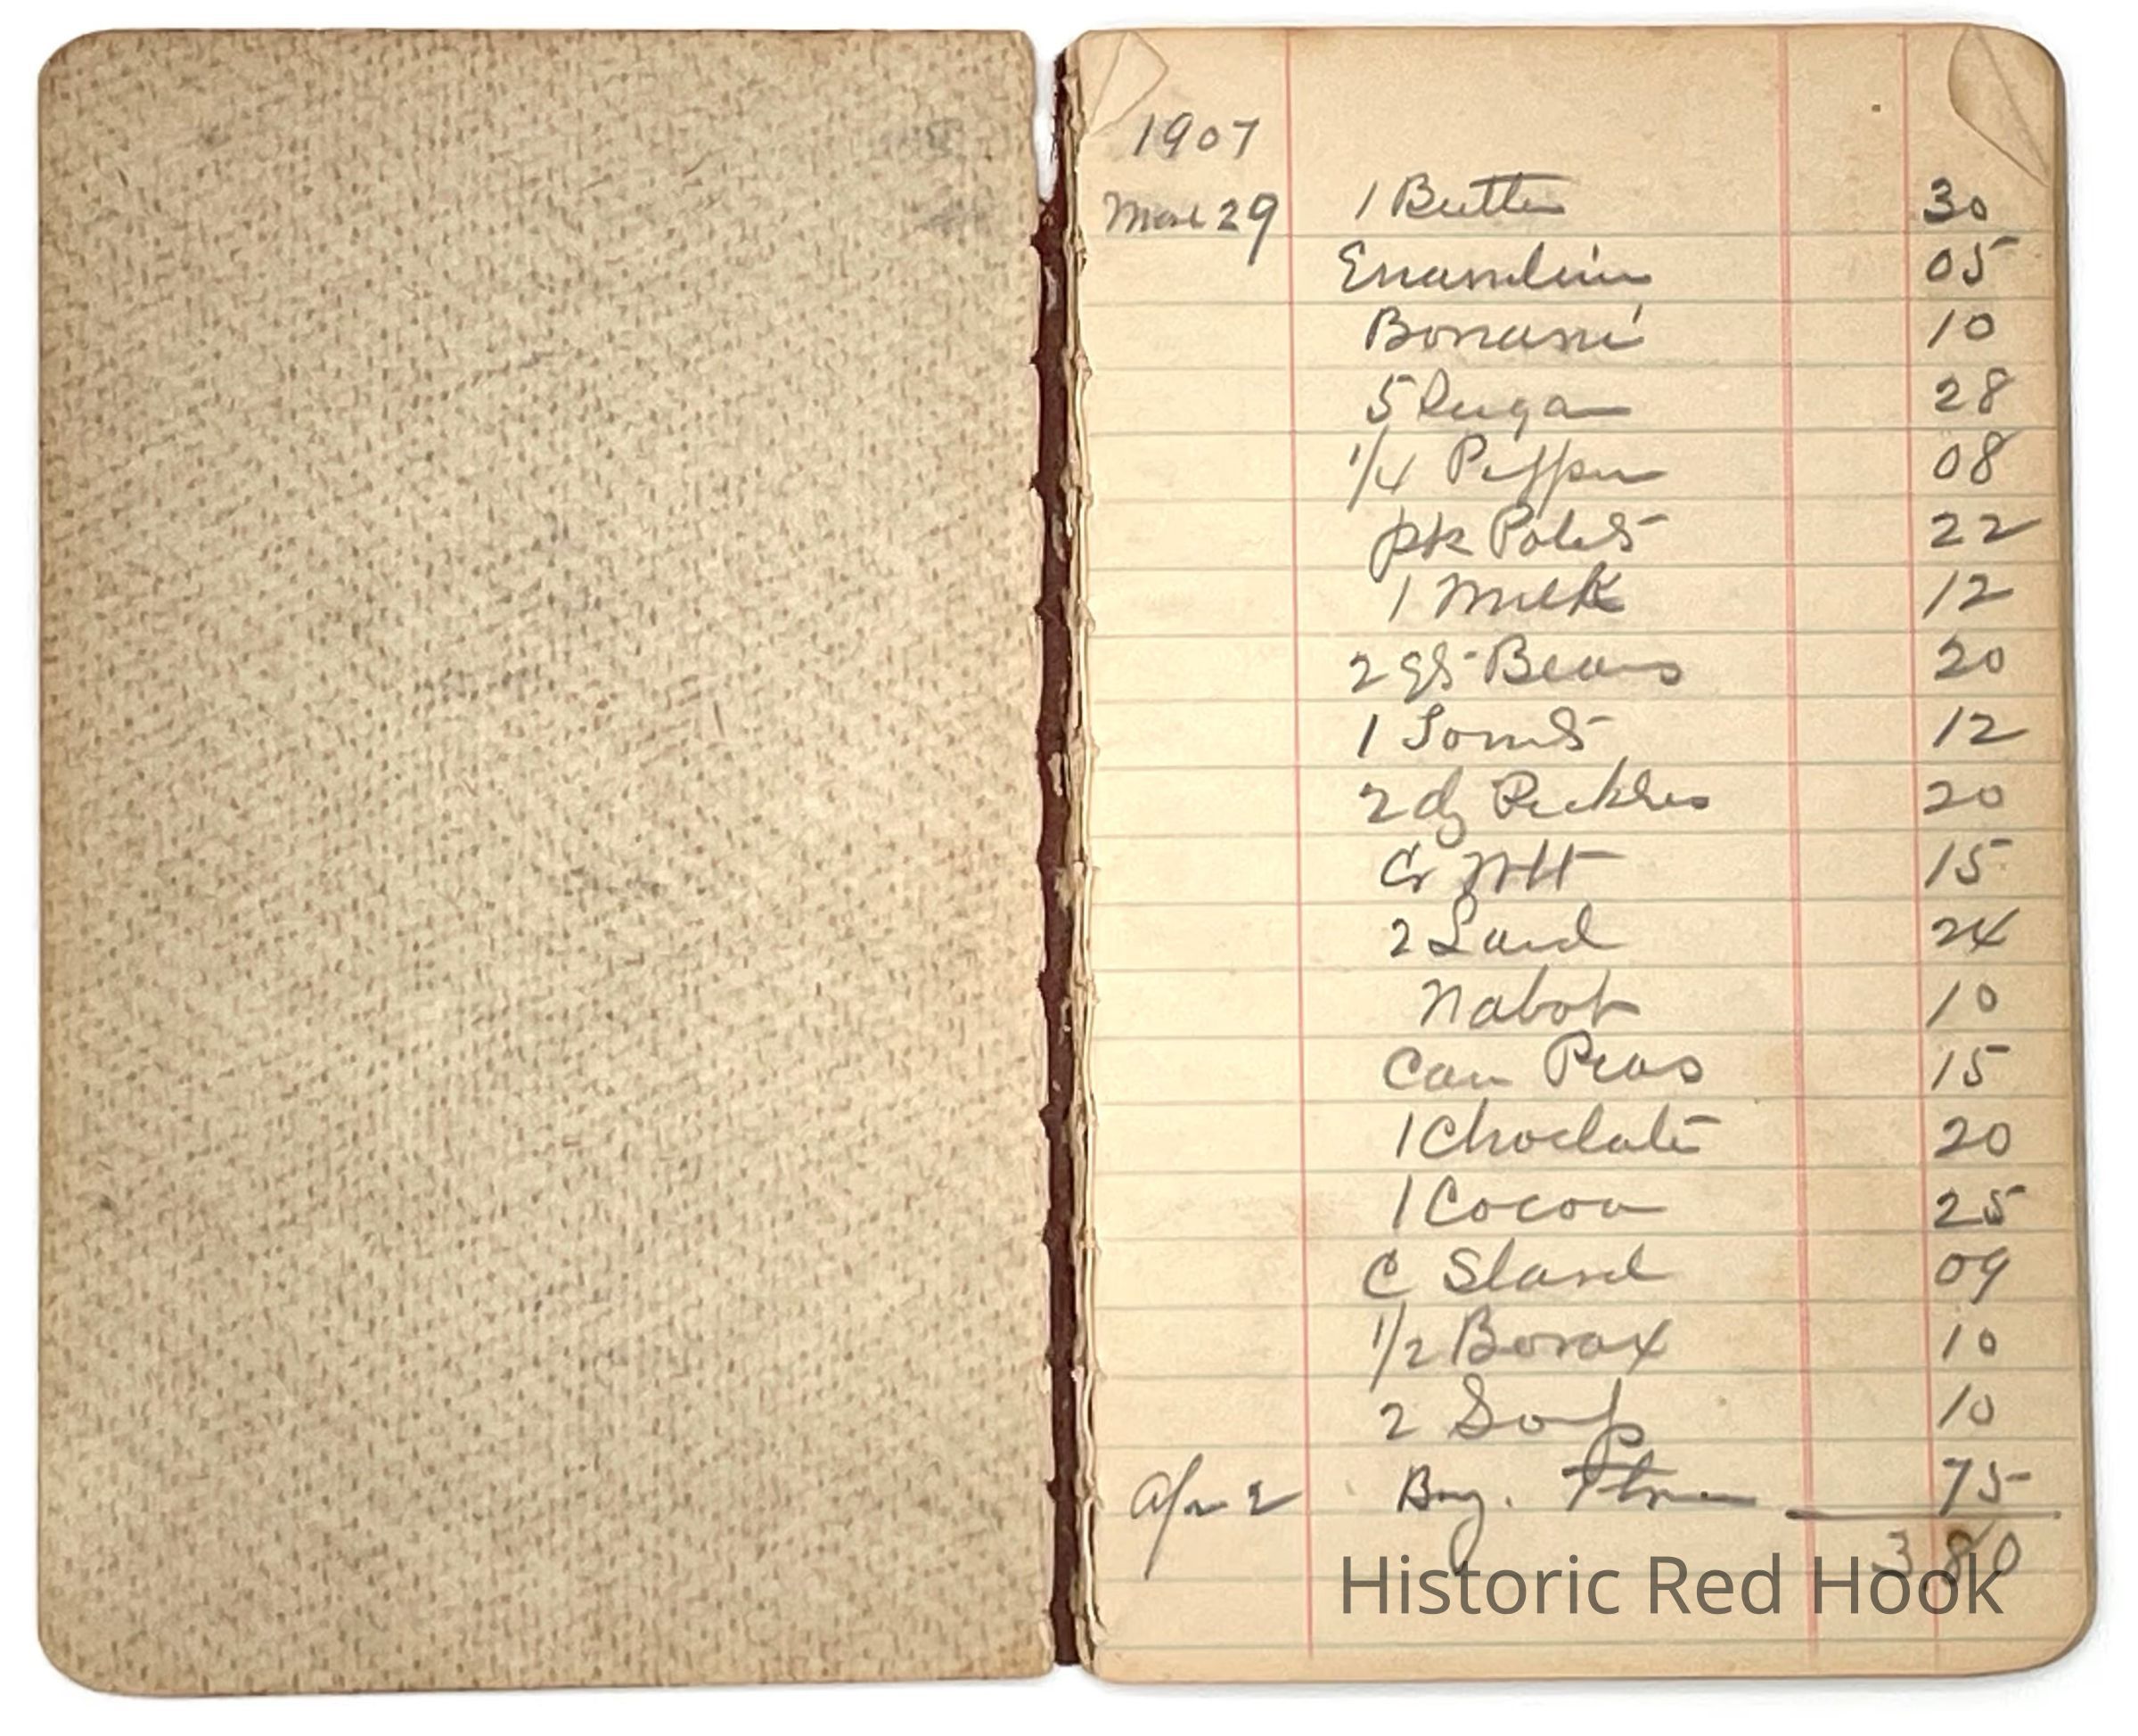 1907
Mar 29 1 Butter 30
Enamelin 05
Bonami 10
5 Sugar 28
1/4 Pepper 08
pk Potats 22
1 Milk 12
2 qts Beans 20
1 Tomts 12
2 dz Pickles 20
Cr Wht 15
2 Lard 24
Nabob 10
Can Peas 15
1 Choclate 20
1 Cocoa 25
C Starch 09
1/2 Borax 10
2 Soap 10
Apr 2 Bag. Flour 75
3 80
Historic Red Hook